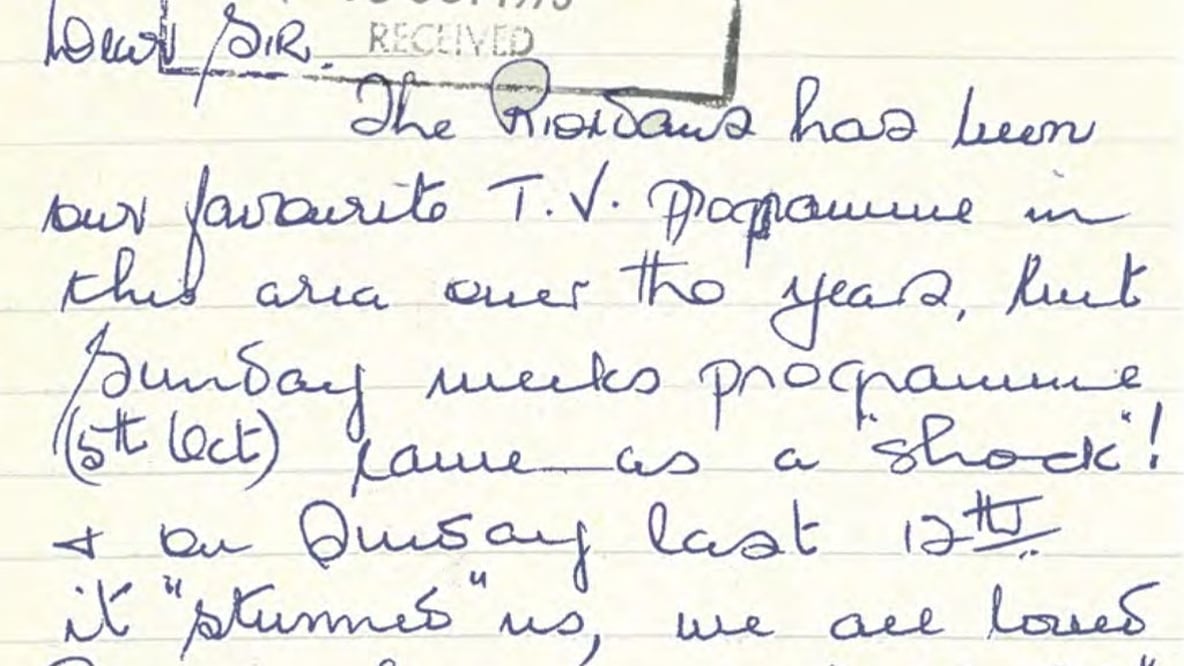 Dear Sir.
RECEIVED
The Riordans has been
our favourite T.V. programme in
this area over the years, but
Sunday weeks programme
(5th Oct) came as a "shock"!
+ on Sunday last 12th
it "stunned" us, we all loved